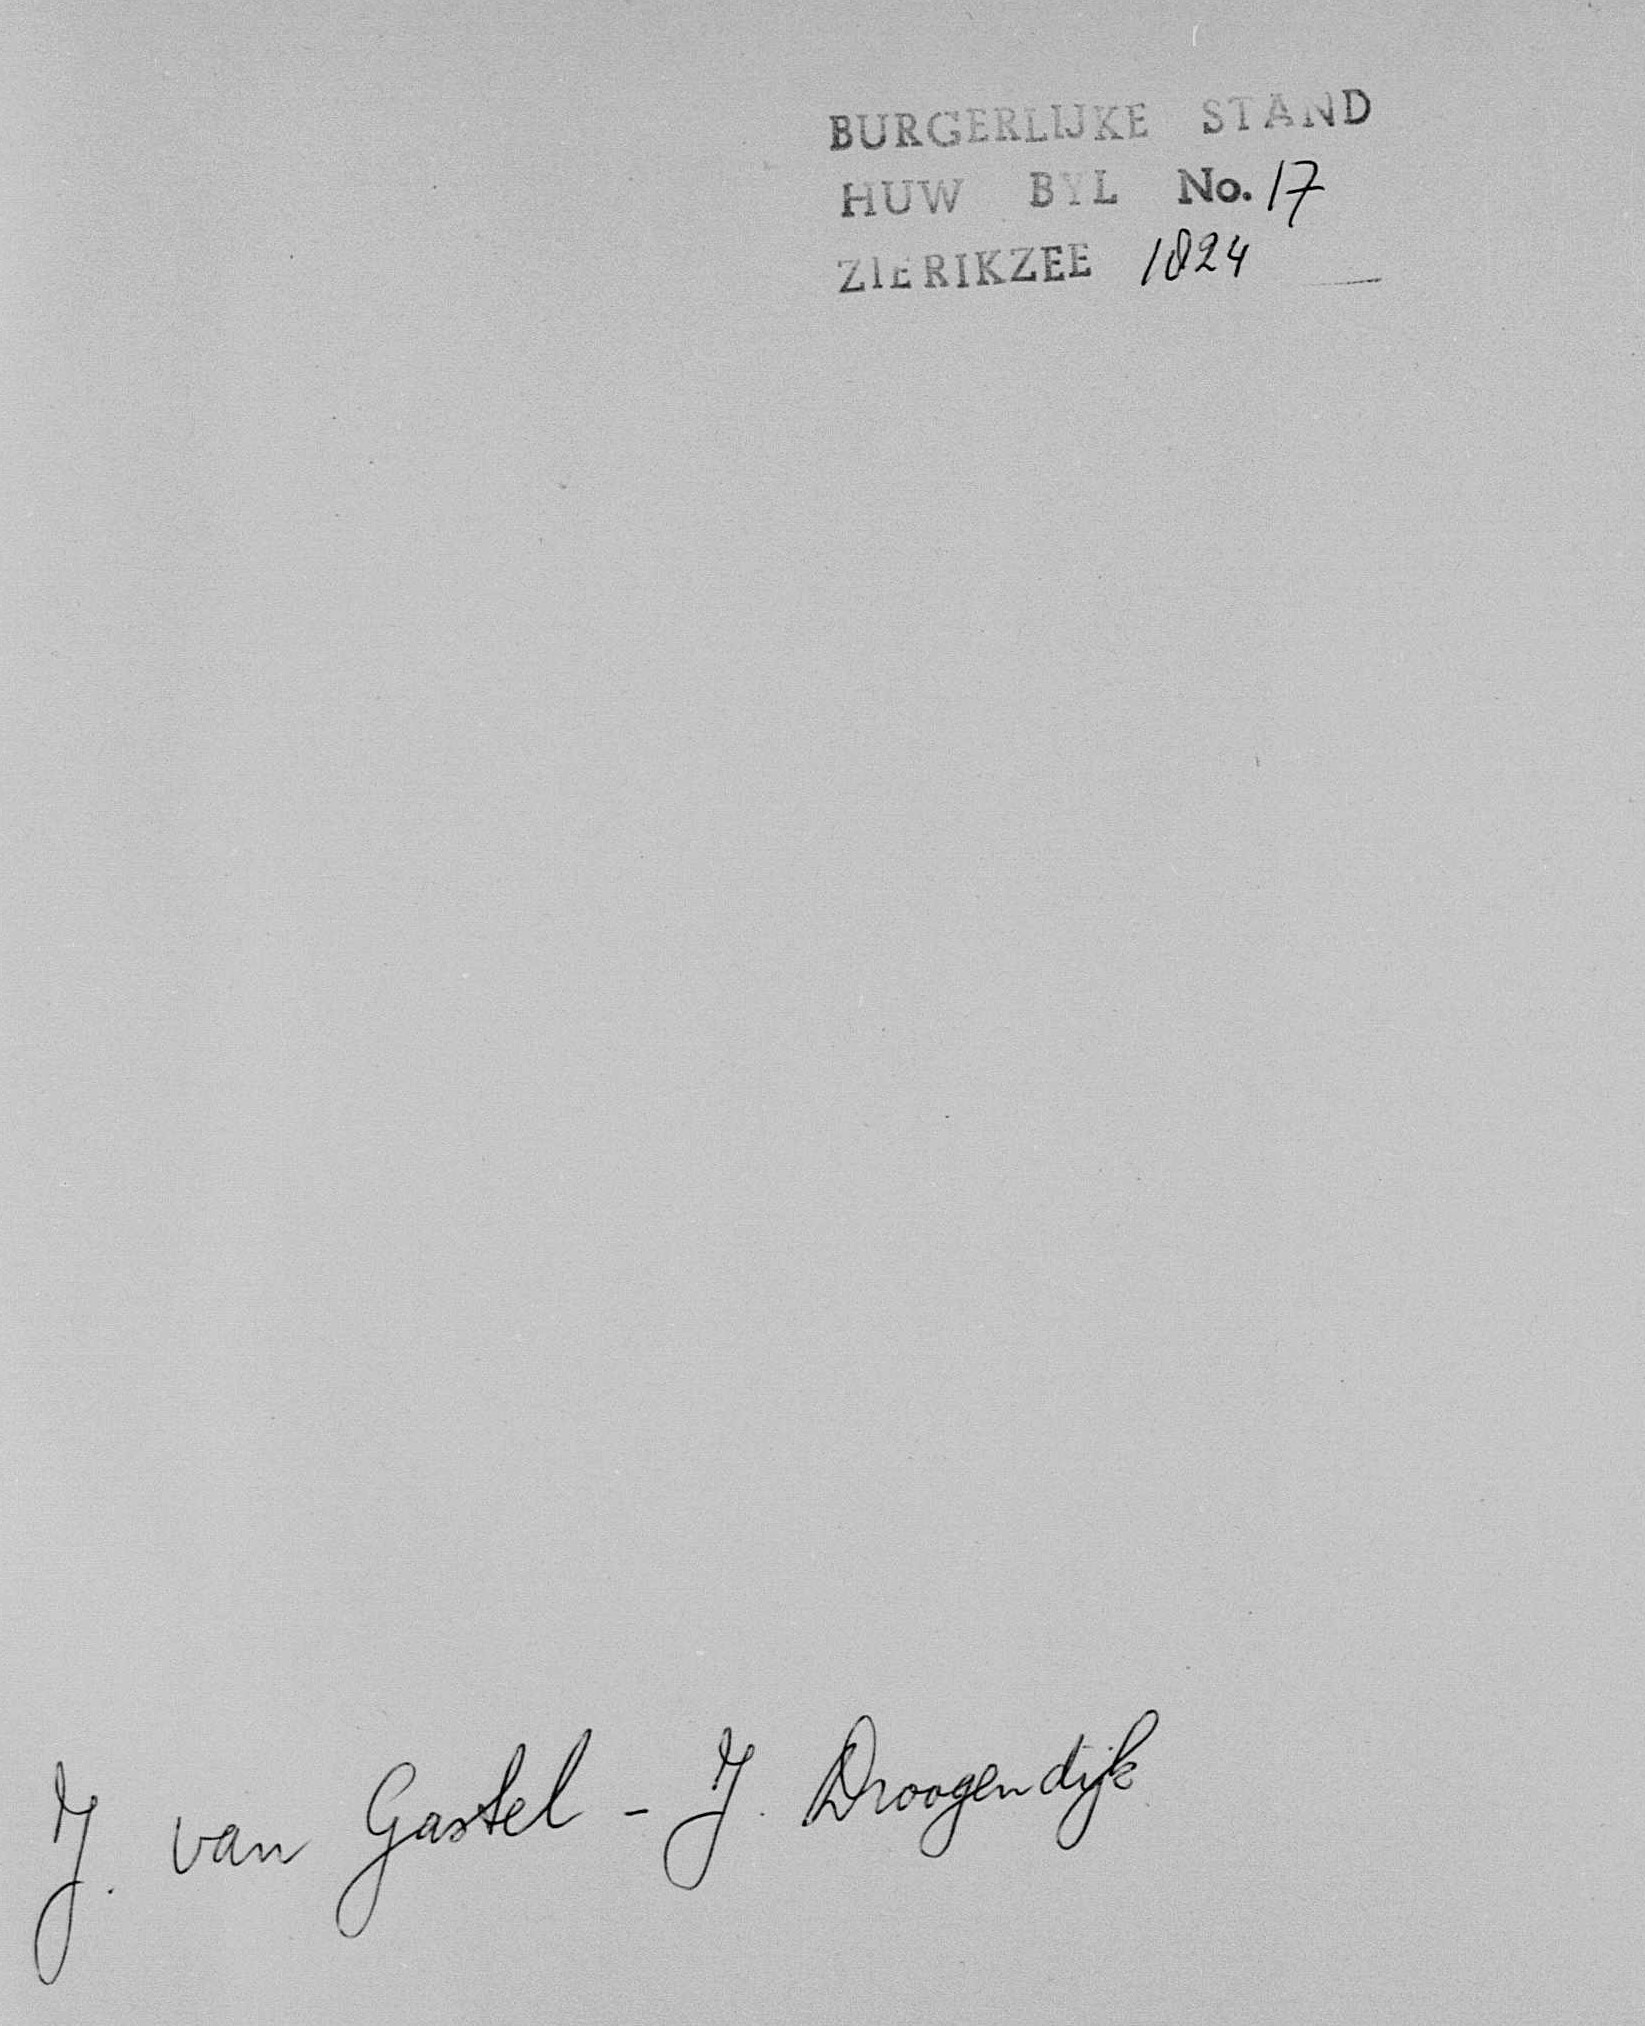 BURGERLIJKE STAND
HUW BYL No. 17
ZIERIKZEE 1824
J. van Gastel - J. Droogendijk